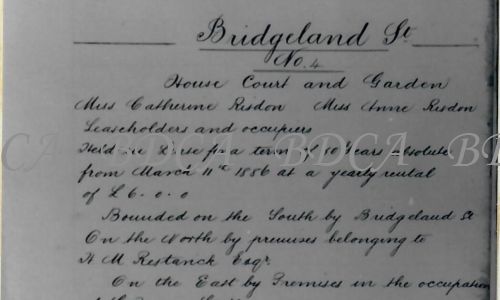 Bridgeland St
No. 4
House Court and Garden
Miss Catherine Risdon Miss Anne Risdon
Leaseholders and occupiers
Held in for a term of years absolute
from March 11th 1856 at a yearly rental
of £ 6 - 0 - 0
Bounded on the South by Bridgeland St
On the North by premises belonging to
H M Restarick Esqr.
On the East by Premises in the occupation
BDCA